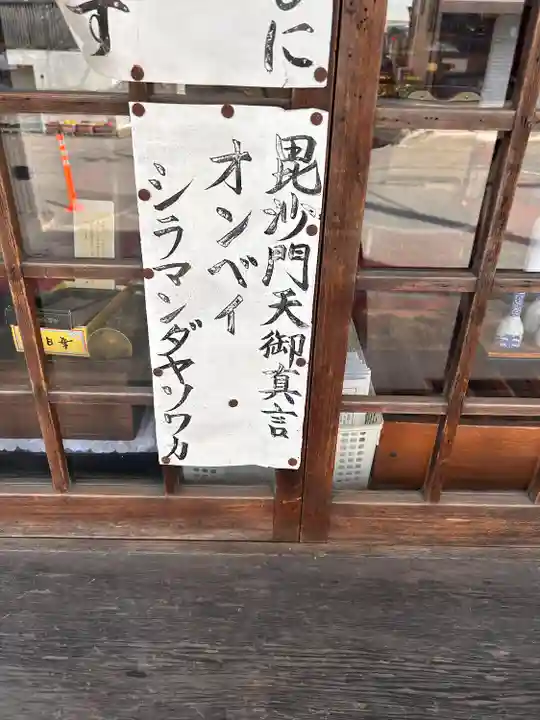 に
す
毘沙門天御真言
オンベイ
シラマンダヤソワカ